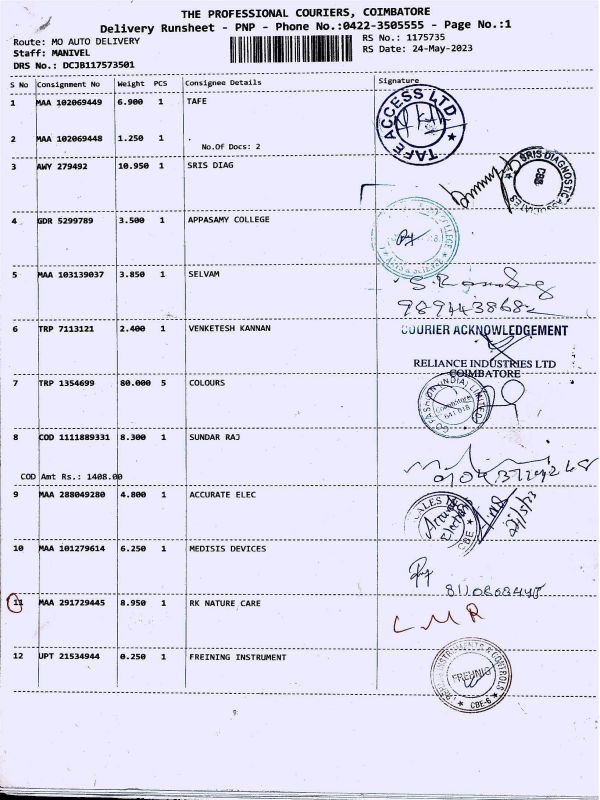 THE PROFESSIONAL COURIERS, COIMBATORE
Delivery Runsheet - PNP - Phone No.:0422-3505555 - Page No.:1
Route: MO AUTO DELIVERY RS No.: 1175735
Staff: MANIVEL RS Date: 24-May-2023
DRS No.: DCJB117573501
S No Consignment No Weight PCS Consignee Details Signature
1 MAA 102069449 6.900 1 TAFE
TAFE ACCESS LTD
2 MAA 102069448 1.250 1 .
No.Of Docs: 2
3 AWY 279492 10.950 1 SRIS DIAG
SRIS DIAGNOSTIC ASSOCIATES
CBE
4 GDR 5299789 3.500 1 APPASAMY COLLEGE
COLLEGE
5 MAA 103139037 3.850 1 SELVAM
6 TRP 7113121 2.400 1 VENKETESH KANNAN
COURIER ACKNOWLEDGEMENT
RELIANCE INDUSTRIES LTD
COIMBATORE
7 TRP 1354699 80.000 5 COLOURS
GO FASHION (INDIA) LIMITED
Coimbatore
641 018
8 COD 1111889331 8.300 1 SUNDAR RAJ
COD Amt Rs.: 1408.00
9 MAA 288049280 4.800 1 ACCURATE ELEC
SALES
CBE
10 MAA 101279614 6.250 1 MEDISIS DEVICES
11 MAA 291729445 8.950 1 RK NATURE CARE
LMR
12 UPT 21534944 0.250 1 FREINING INSTRUMENT
INSTRUMENTS & CONTROLS
CBE-6